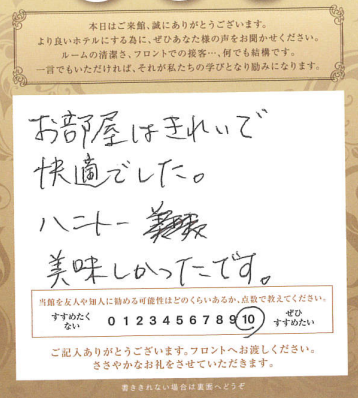 本日はご来館、誠にありがとうございます。
より良いホテルにする為に、ぜひあなた様の声をお聞かせください。
ルームの清潔さ、フロントでの接客…、何でも結構です。
一言でもいただければ、それが私たちの学びとなり励みになります。
お部屋はきれいで
快適でした。
ハニトー
美味しかったです。
当館を友人や知人に勧める可能性はどのくらいあるか、点数で教えてください。
すすめたくない 0 1 2 3 4 5 6 7 8 9 10 ぜひすすめたい
ご記入ありがとうございます。フロントへお渡しください。
ささやかなお礼をさせていただきます。
書ききれない場合は裏面へどうぞ